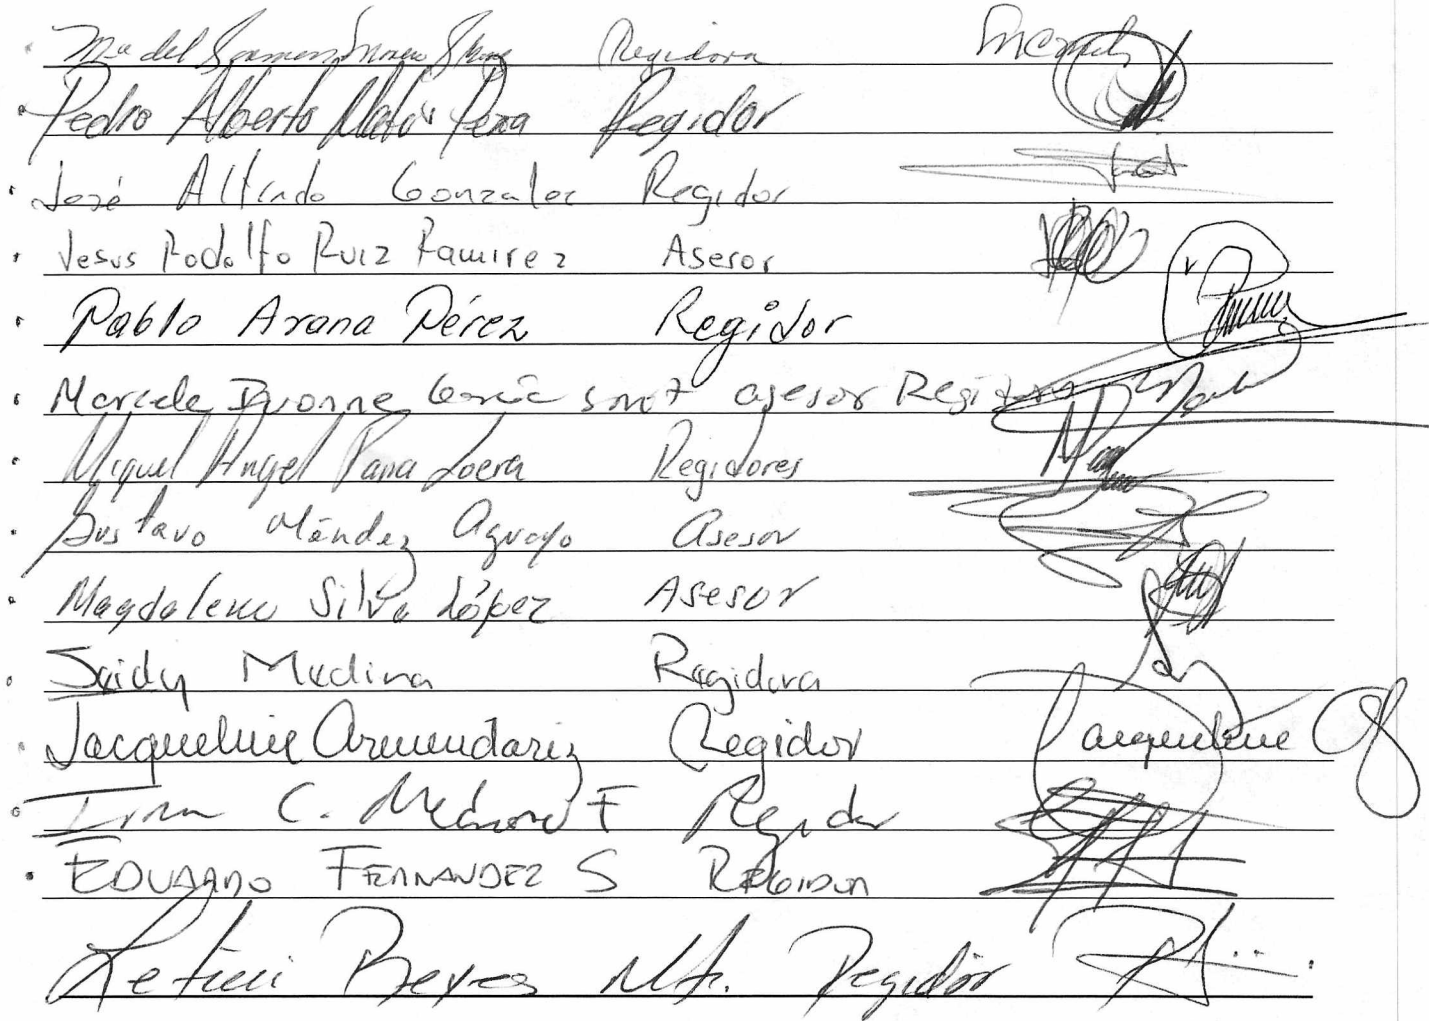 Ma del Carmen Regidora
Pedro Alberto Matus Peña Regidor
José Alfredo Gonzalez Regidor
Jesus Rodolfo Ruiz Ramirez Asesor
Pablo Arana Pérez Regidor
Marcela Ivonne García asesor Regidora
Miguel Angel Parra Loera Regidores
Gustavo Méndez Aguayo Asesor
Magdaleno Silva López Asesor
Saidy Medina Regidora
Jacqueline Armendariz Regidor Jacqueline
Irma C. Medrano F Regidor
EDUARDO FERNANDEZ S REGIDOR
Reyes Regidor